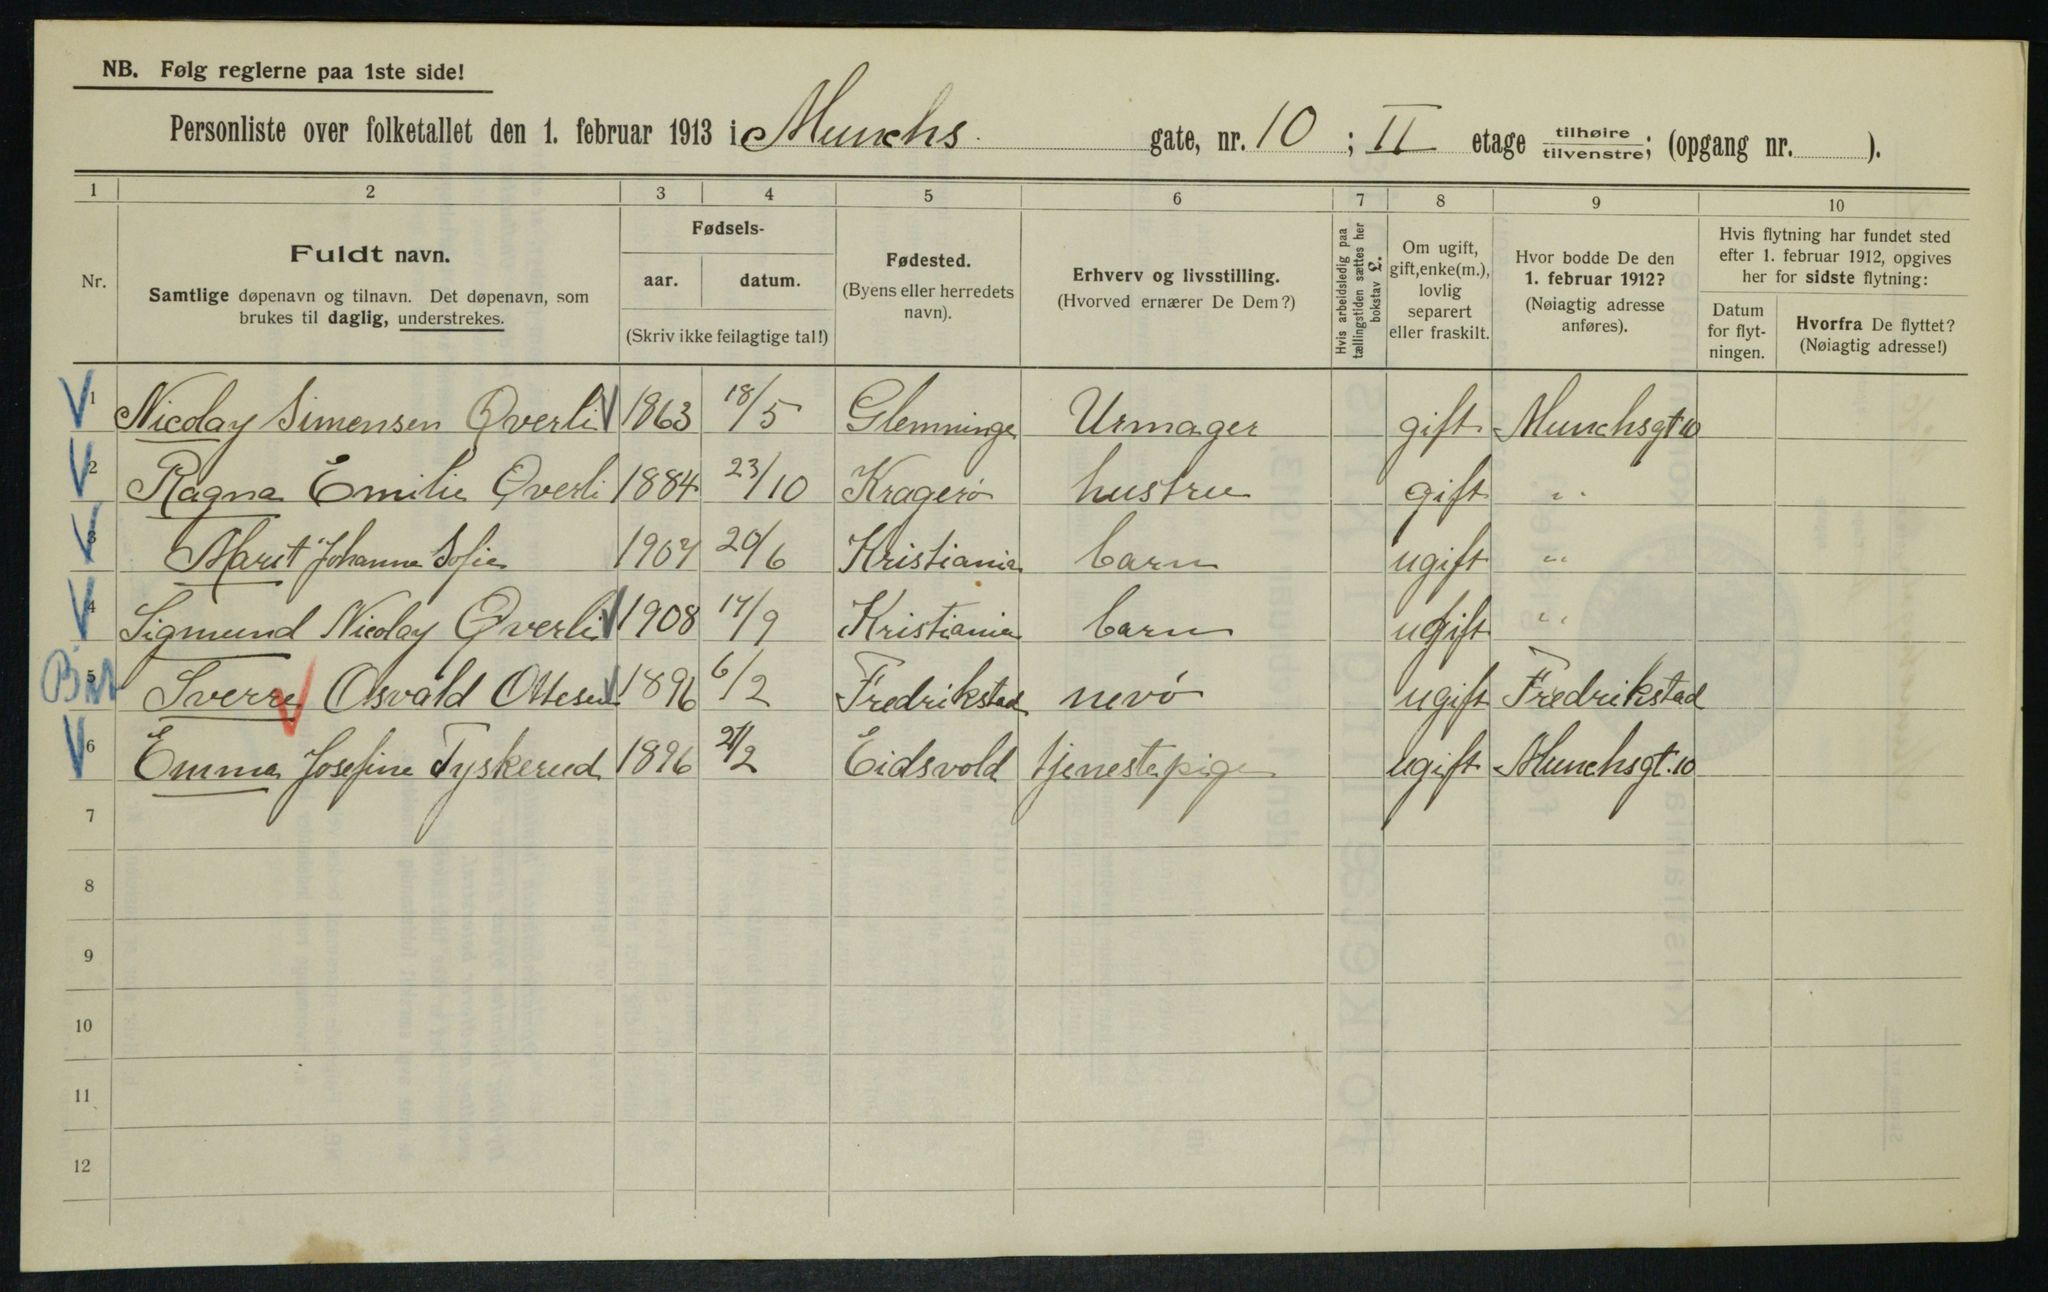 NB. Følg reglerne paa 1ste side!
Personliste over folketallet den 1. februar 1913 i Munchs gate, nr. 10 ; II etage tilhøire/tilvenstre; (opgang nr. ).
1 2 3 4 5 6 7 8 9 10
Nr.
Fuldt navn.
Samtlige døpenavn og tilnavn. Det døpenavn, som
brukes til daglig, understrekes.
Fødsels-
aar. datum.
(Skriv ikke feilagtige tal!)
Fødested.
(Byens eller herredets
navn).
Erhverv og livsstilling.
(Hvorved ernærer De Dem?)
Hvis arbeidsledig paa
tællingstiden sættes her
bokstav L.
Om ugift,
gift, enke(m.),
lovlig
separert
eller fraskilt.
Hvor bodde De den
1. februar 1912?
(Nøiagtig adresse
anføres).
Hvis flytning har fundet sted
efter 1. februar 1912, opgives
her for sidste flytning:
Datum
for flyt-
ningen.
Hvorfra De flyttet?
(Nøiagtig adresse!)
1 Nicolay Simensen Øverli 1863 18/5 Glemminge Urmager gift Munchsgt 10
2 Ragna Emilie Øverli 1884 23/10 Kragerø hustru gift "
3 Marit Johanne Sofie 1907 20/6 Kristiania barn ugift "
4 Sigmund Nicolay Øverli 1908 17/9 Kristiania barn ugift "
5 Sverre Osvald Ottesen 1896 6/2 Fredrikstad nevø ugift Fredrikstad
6 Emma Josefine Tyskerud 1896 21/2 Eidsvold tjenestepige ugift Munchsgt. 10
7
8
9
10
11
12